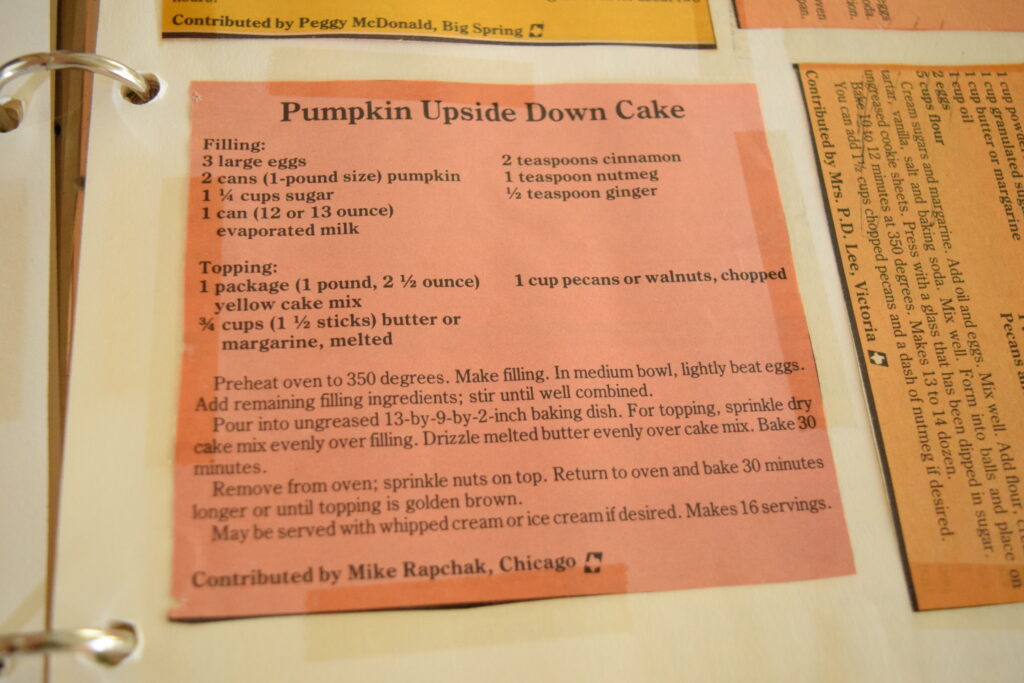 Contributed by Peggy McDonald, Big Spring
Pumpkin Upside Down Cake
Filling:
3 large eggs
2 cans (1-pound size) pumpkin
1 ¼ cups sugar
1 can (12 or 13 ounce)
evaporated milk
2 teaspoons cinnamon
1 teaspoon nutmeg
½ teaspoon ginger
Topping:
1 package (1 pound, 2 ½ ounce)
yellow cake mix
¾ cups (1 ½ sticks) butter or
margarine, melted
1 cup pecans or walnuts, chopped
Preheat oven to 350 degrees. Make filling. In medium bowl, lightly beat eggs.
Add remaining filling ingredients; stir until well combined.
Pour into ungreased 13-by-9-by-2-inch baking dish. For topping, sprinkle dry
cake mix evenly over filling. Drizzle melted butter evenly over cake mix. Bake 30
minutes.
Remove from oven; sprinkle nuts on top. Return to oven and bake 30 minutes
longer or until topping is golden brown.
May be served with whipped cream or ice cream if desired. Makes 16 servings.
Contributed by Mike Rapchak, Chicago
eggs
soda.
oven
pan.
1 cup granulated
1 cup butter or margarine
1 cup oil
2 eggs
5 cups flour
Cream sugars and margarine. Add oil and eggs. Mix well. Add flour,
tartar, vanilla, salt and baking soda. Mix well. Form into balls and place on
ungreased cookie sheets. Press with a glass that has been dipped in sugar.
Bake 10 to 12 minutes at 350 degrees. Makes 13 to 14 dozen.
You can add 1½ cups chopped pecans and a dash of nutmeg if desired.
Contributed by Mrs. P.D. Lee, Victoria
Pecans